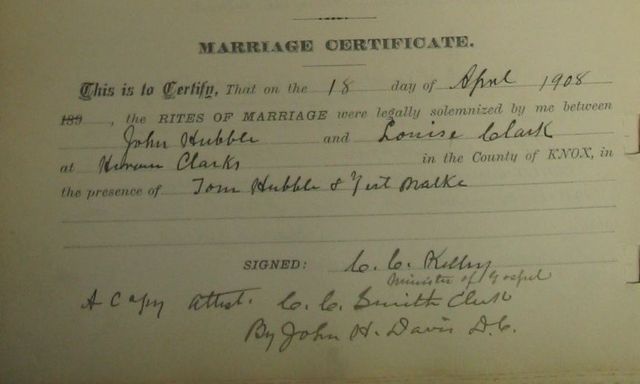 MARRIAGE CERTIFICATE.
This is to Certify, That on the 18 day of April 1908
189 , the RITES OF MARRIAGE were legally solemnized by me between
John Hubble and Louise Clark
at Hiram Clarks in the County of KNOX, in
the presence of Tom Hubble &
SIGNED: C. C. Kelly
Minister of Gospel
A Copy Attest. C. C. Smith Clerk
By John H. Davis D.C.